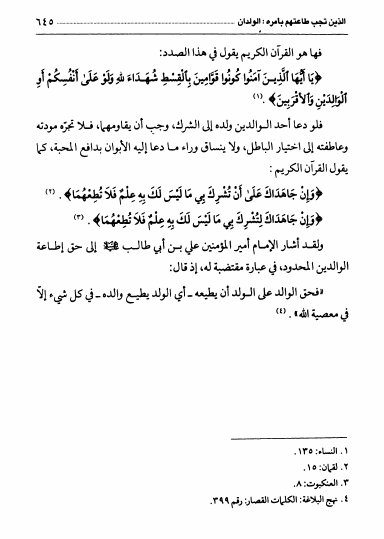 الذين تجب طاعتهم بأمره : الوالدان ........ ٦٤٥
فها هو القرآن الكريم يقول في هذا الصدد:
﴿يَا أَيُّهَا ٱلَّذِينَ آمَنُوا كُونُوا قَوَّامِينَ بِٱلْقِسْطِ شُهَدَاءَ للهِ وَلَوْ عَلَىٰ أَنْفُسِكُمْ أَوِ
ٱلْوَالِدَيْنِ وَٱلأَقْرَبِينَ﴾ .(١)
فلو دعا أحد الـوالدين ولده إلى الشرك، وجب أن يقاومهما، فـلا تجرّه مودته
وعاطفته إلى اختيار الباطل، ولا ينساق وراء مـا دعا إليه الأبوان بدافع المحبة، كما
يقول القرآن الكريم :
﴿وَإِن جَاهَدَاكَ عَلَىٰ أَنْ تُشْرِكَ بِي مَا لَيْسَ لَكَ بِهِ عِلْمٌ فَلَا تُطِعْهُمَا﴾ . (٢)
﴿وَإِن جَاهَدَاكَ لِتُشْرِكَ بِي مَا لَيْسَ لَكَ بِهِ عِلْمٌ فَلَا تُطِعْهُمَا﴾ . (٣)
ولقـد أشار الإمـام أمير المؤمنين علي بـن أبي طالب إلى حق إطـاعة
الوالدين المحدود، في عبارة مقتضبة له، إذ قال:
«فحق الوالد على الـولد أن يطيعه ــ أي الولد يطيـع والده ــ في كل شيء إلاّ
في معصية الله» . (٤)
١. النساء: ١٣٥.
٢. لقمان: ١٥.
٣. العنكبوت: ٨.
٤. نهج البلاغة: الكلمات القصار: رقم ٣٩٩.